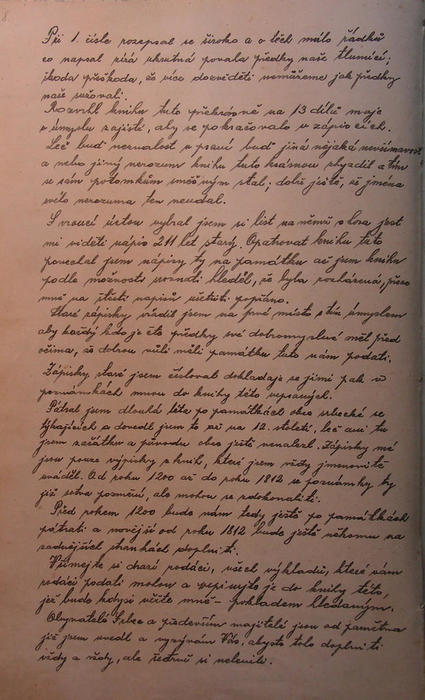 Při 1. čísle rozepsal se široko a v těch málo řádků
co napsal
předky naše
škoda přeškoda, že více dozvěděti nemůžeme jak předky
naše sužovali.
Rozvrhl knihu tuto překrásně na 13 dílů maje
v úmyslu zajisté, aby se pokračovalo v zápiscích.
Leč buď neznalost v psaní buď jiná nějaká nevšímavost
a nebo jiný nerozum knihu tuto krásnou shyzdil a tím
se sám potomkům směšným stal; dobře ještě, že jména
svého nerozuma ten neudal.
S vroucí úctou vybral jsem si list na němž skoro jest
mi viděti nápis 211 let starý. Opatrovat knihu tuto
ponechal jsem nápisy ty na památku ač jsem knihu
podle možnosti srovnati hleděl, že byla rozházená, přece
mně na štěstí nápisů učísti popřáno.
Staré zápisky vřadil jsem na prvé místo s tím úmyslem
aby každý kdo je čte předky své dobromyslné měl před
očima, že dobrou vůli měli památku tuto nám podati.
Zápisky staré jsem čísloval dokládaje se jimi pak v
poznámkách mnou do knihy této vepsaných.
Pátral jsem dlouhá léta po památkách obce srbecké se
týkajících a dovedl jsem to až na 12. století, leč ani tu
jsem začátku a původu obce ještě nenalezl. Zápisky mé
jsou pouze výpisky z knih, které jsem vždy jmenovitě
uváděl. Od roku 1200 až do roku 1812 se poznámky by
již sotva pozměnil, ale mohou se zdokonaliti.
Před rokem 1200 bude nám tedy ještě po památkách
pátrati a novější od roku 1812 bude ještě někomu na
zadnějších stránkách doplniti.
Všímejte si drazí rodáci, všech výkladů, které vám
rodáci podati mohou a vepisujte je do knihy této,
jež bude kdysi věřte mně - pokladem hledaným.
Obyvatelé Srbce a především majitelé jsou od pamětna
již jsem uvedl a vyzývám Vás, abyste toto doplniti
vždy a vždy, ale řádně si nelenili.